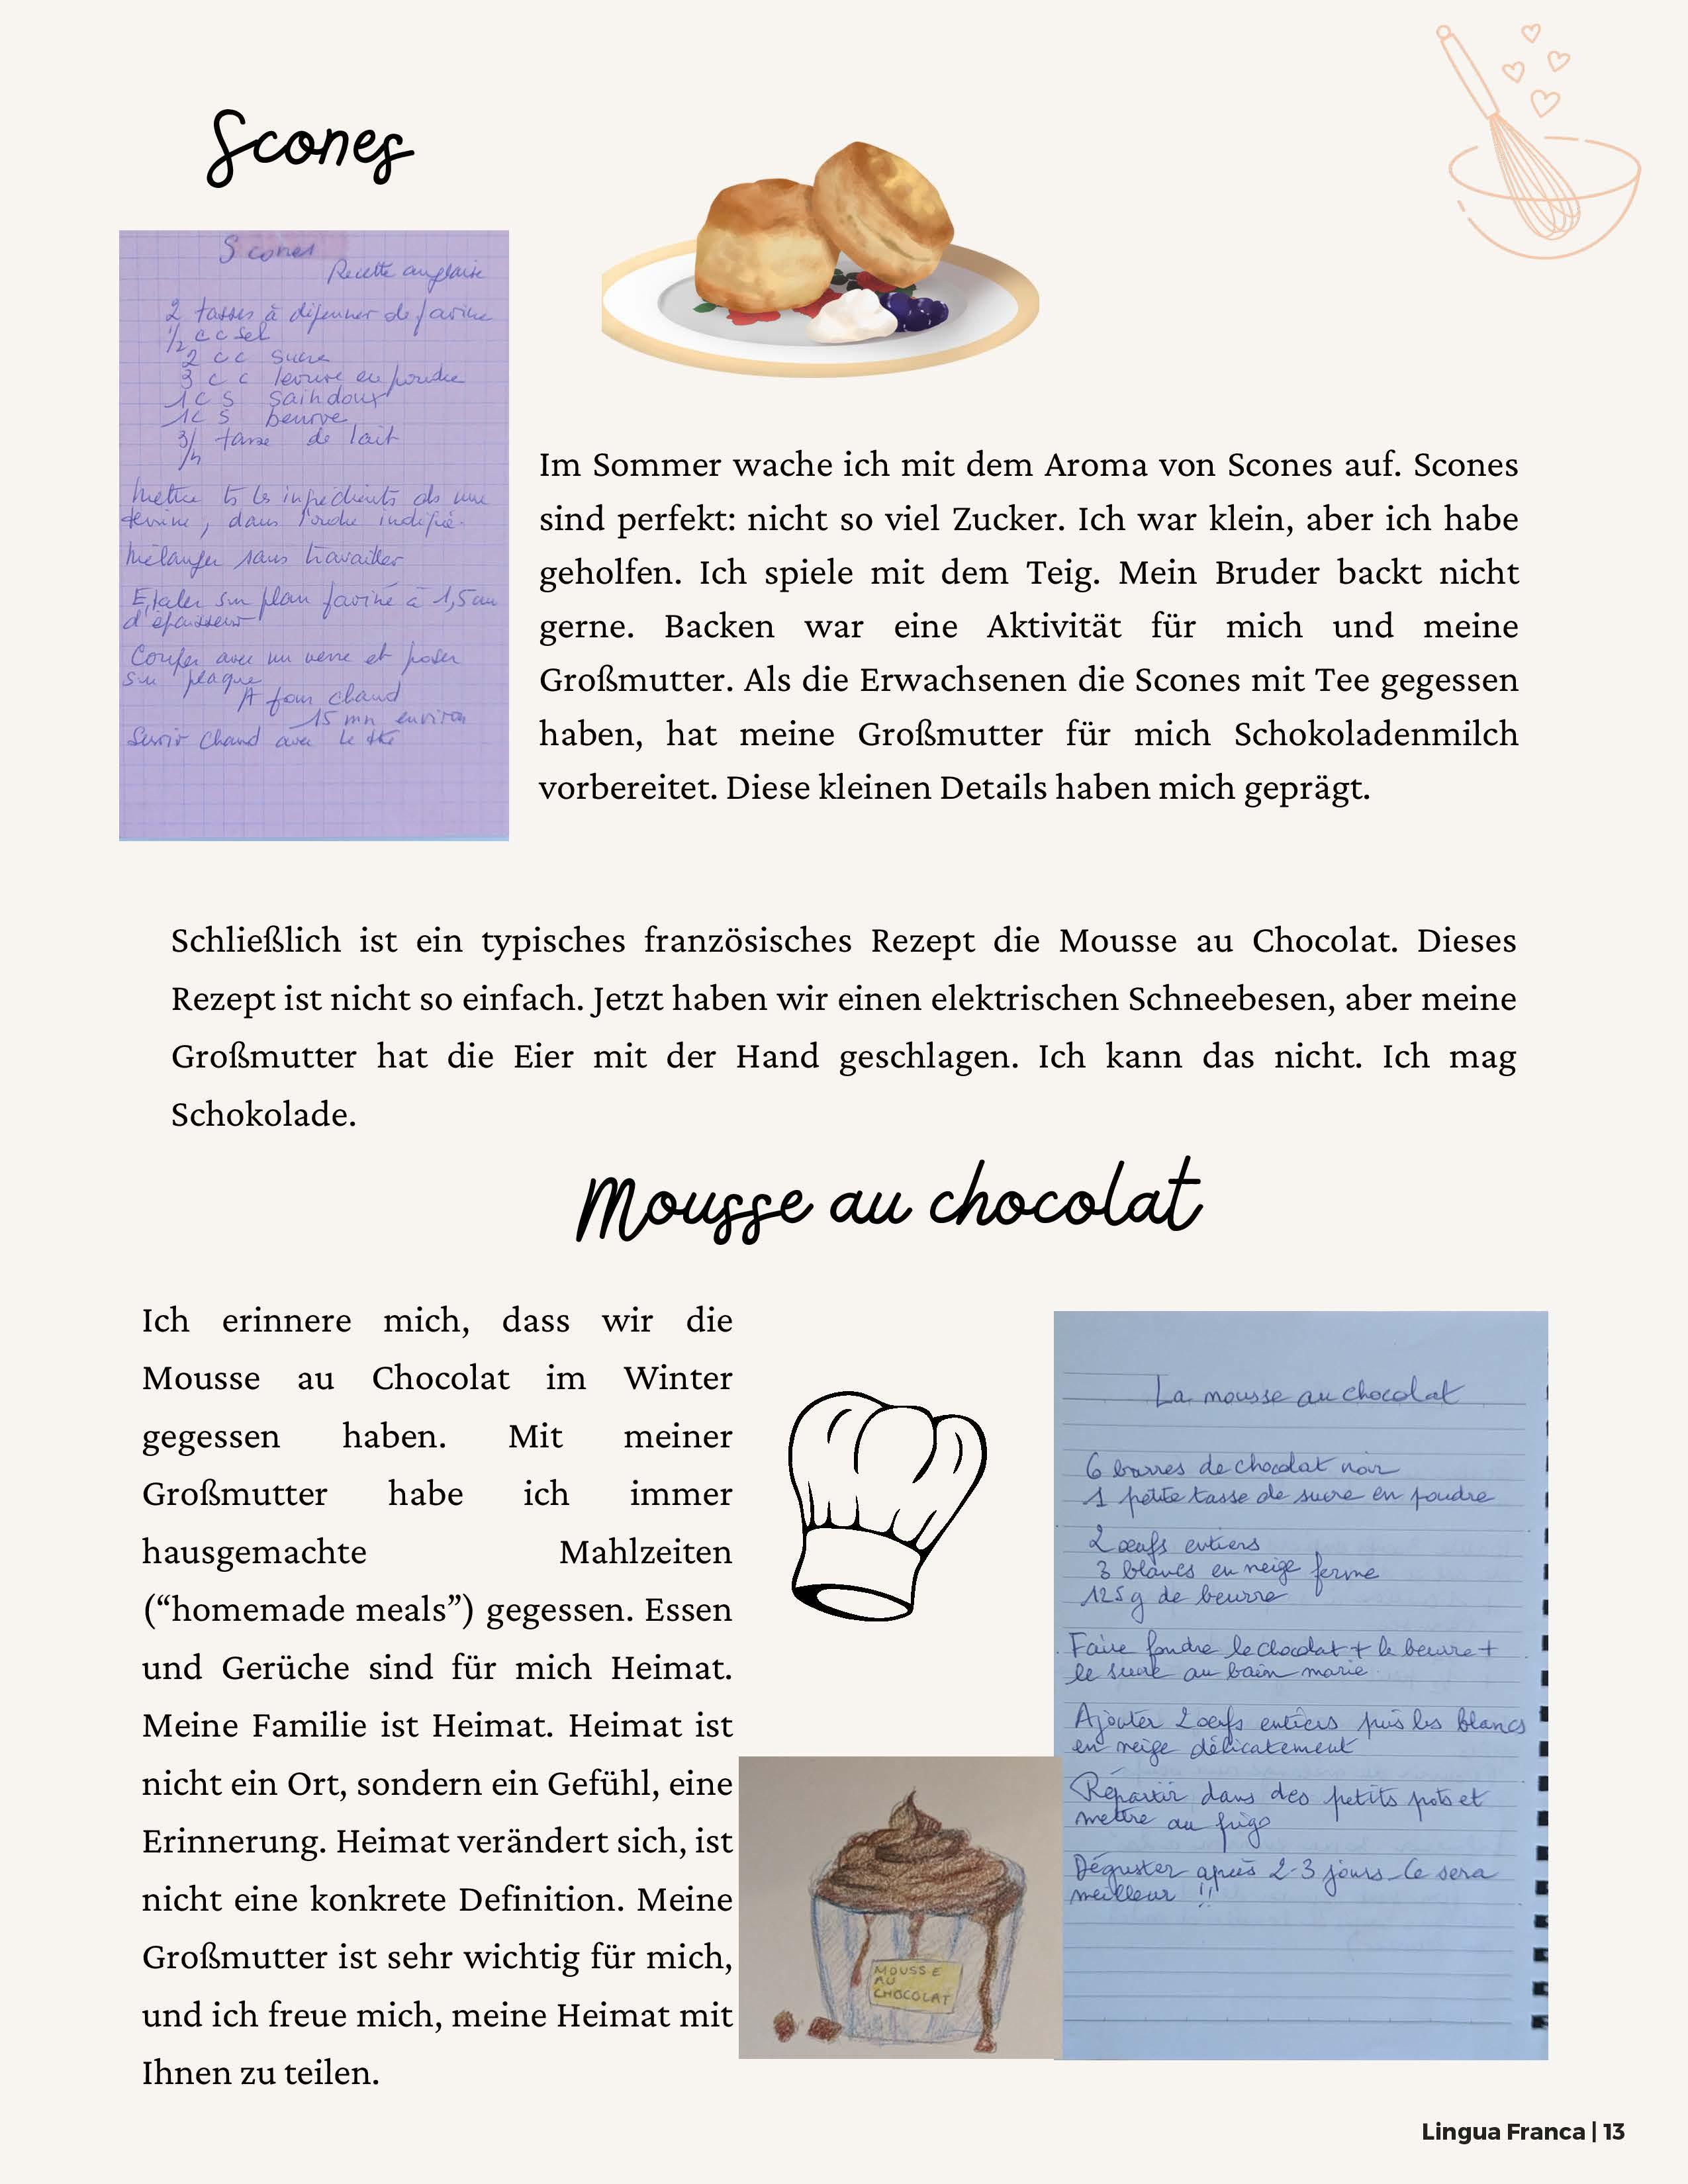 Scones
Scones
Recette anglaise
2 tasses à déjeuner de farine
1/2 c c sel
2 c c sucre
3 c c levure en poudre
1 c s saindoux
1 c s beurre
3/4 tasse de lait
Mettre ts les ingrédients ds une
terrine, dans l'ordre indiqué.
Mélanger sans travailler
Etaler sur plan fariné à 1,5 cm
d'épaisseur
Couper avec un verre et poser
sur plaque
A four chaud
15 mn environ
Servir chaud avec le thé
Im Sommer wache ich mit dem Aroma von Scones auf. Scones
sind perfekt: nicht so viel Zucker. Ich war klein, aber ich habe
geholfen. Ich spiele mit dem Teig. Mein Bruder backt nicht
gerne. Backen war eine Aktivität für mich und meine
Großmutter. Als die Erwachsenen die Scones mit Tee gegessen
haben, hat meine Großmutter für mich Schokoladenmilch
vorbereitet. Diese kleinen Details haben mich geprägt.
Schließlich ist ein typisches französisches Rezept die Mousse au Chocolat. Dieses
Rezept ist nicht so einfach. Jetzt haben wir einen elektrischen Schneebesen, aber meine
Großmutter hat die Eier mit der Hand geschlagen. Ich kann das nicht. Ich mag
Schokolade.
Mousse au chocolat
Ich erinnere mich, dass wir die
Mousse au Chocolat im Winter
gegessen haben. Mit meiner
Großmutter habe ich immer
hausgemachte Mahlzeiten
(“homemade meals”) gegessen. Essen
und Gerüche sind für mich Heimat.
Meine Familie ist Heimat. Heimat ist
nicht ein Ort, sondern ein Gefühl, eine
Erinnerung. Heimat verändert sich, ist
nicht eine konkrete Definition. Meine
Großmutter ist sehr wichtig für mich,
und ich freue mich, meine Heimat mit
Ihnen zu teilen.
MOUSSE
AU
CHOCOLAT
La mousse au chocolat
6 barres de chocolat noir
1 petite tasse de sucre en poudre
2 œufs entiers
3 blancs en neige ferme
125g de beurre
Faire fondre le chocolat + le beurre +
le sucre au bain marie
Ajouter 2 œufs entiers puis les blancs
en neige délicatement
Répartir dans des petits pots et
mettre au frigo
Déguster après 2-3 jours. Ce sera
meilleur !!
Lingua Franca | 13